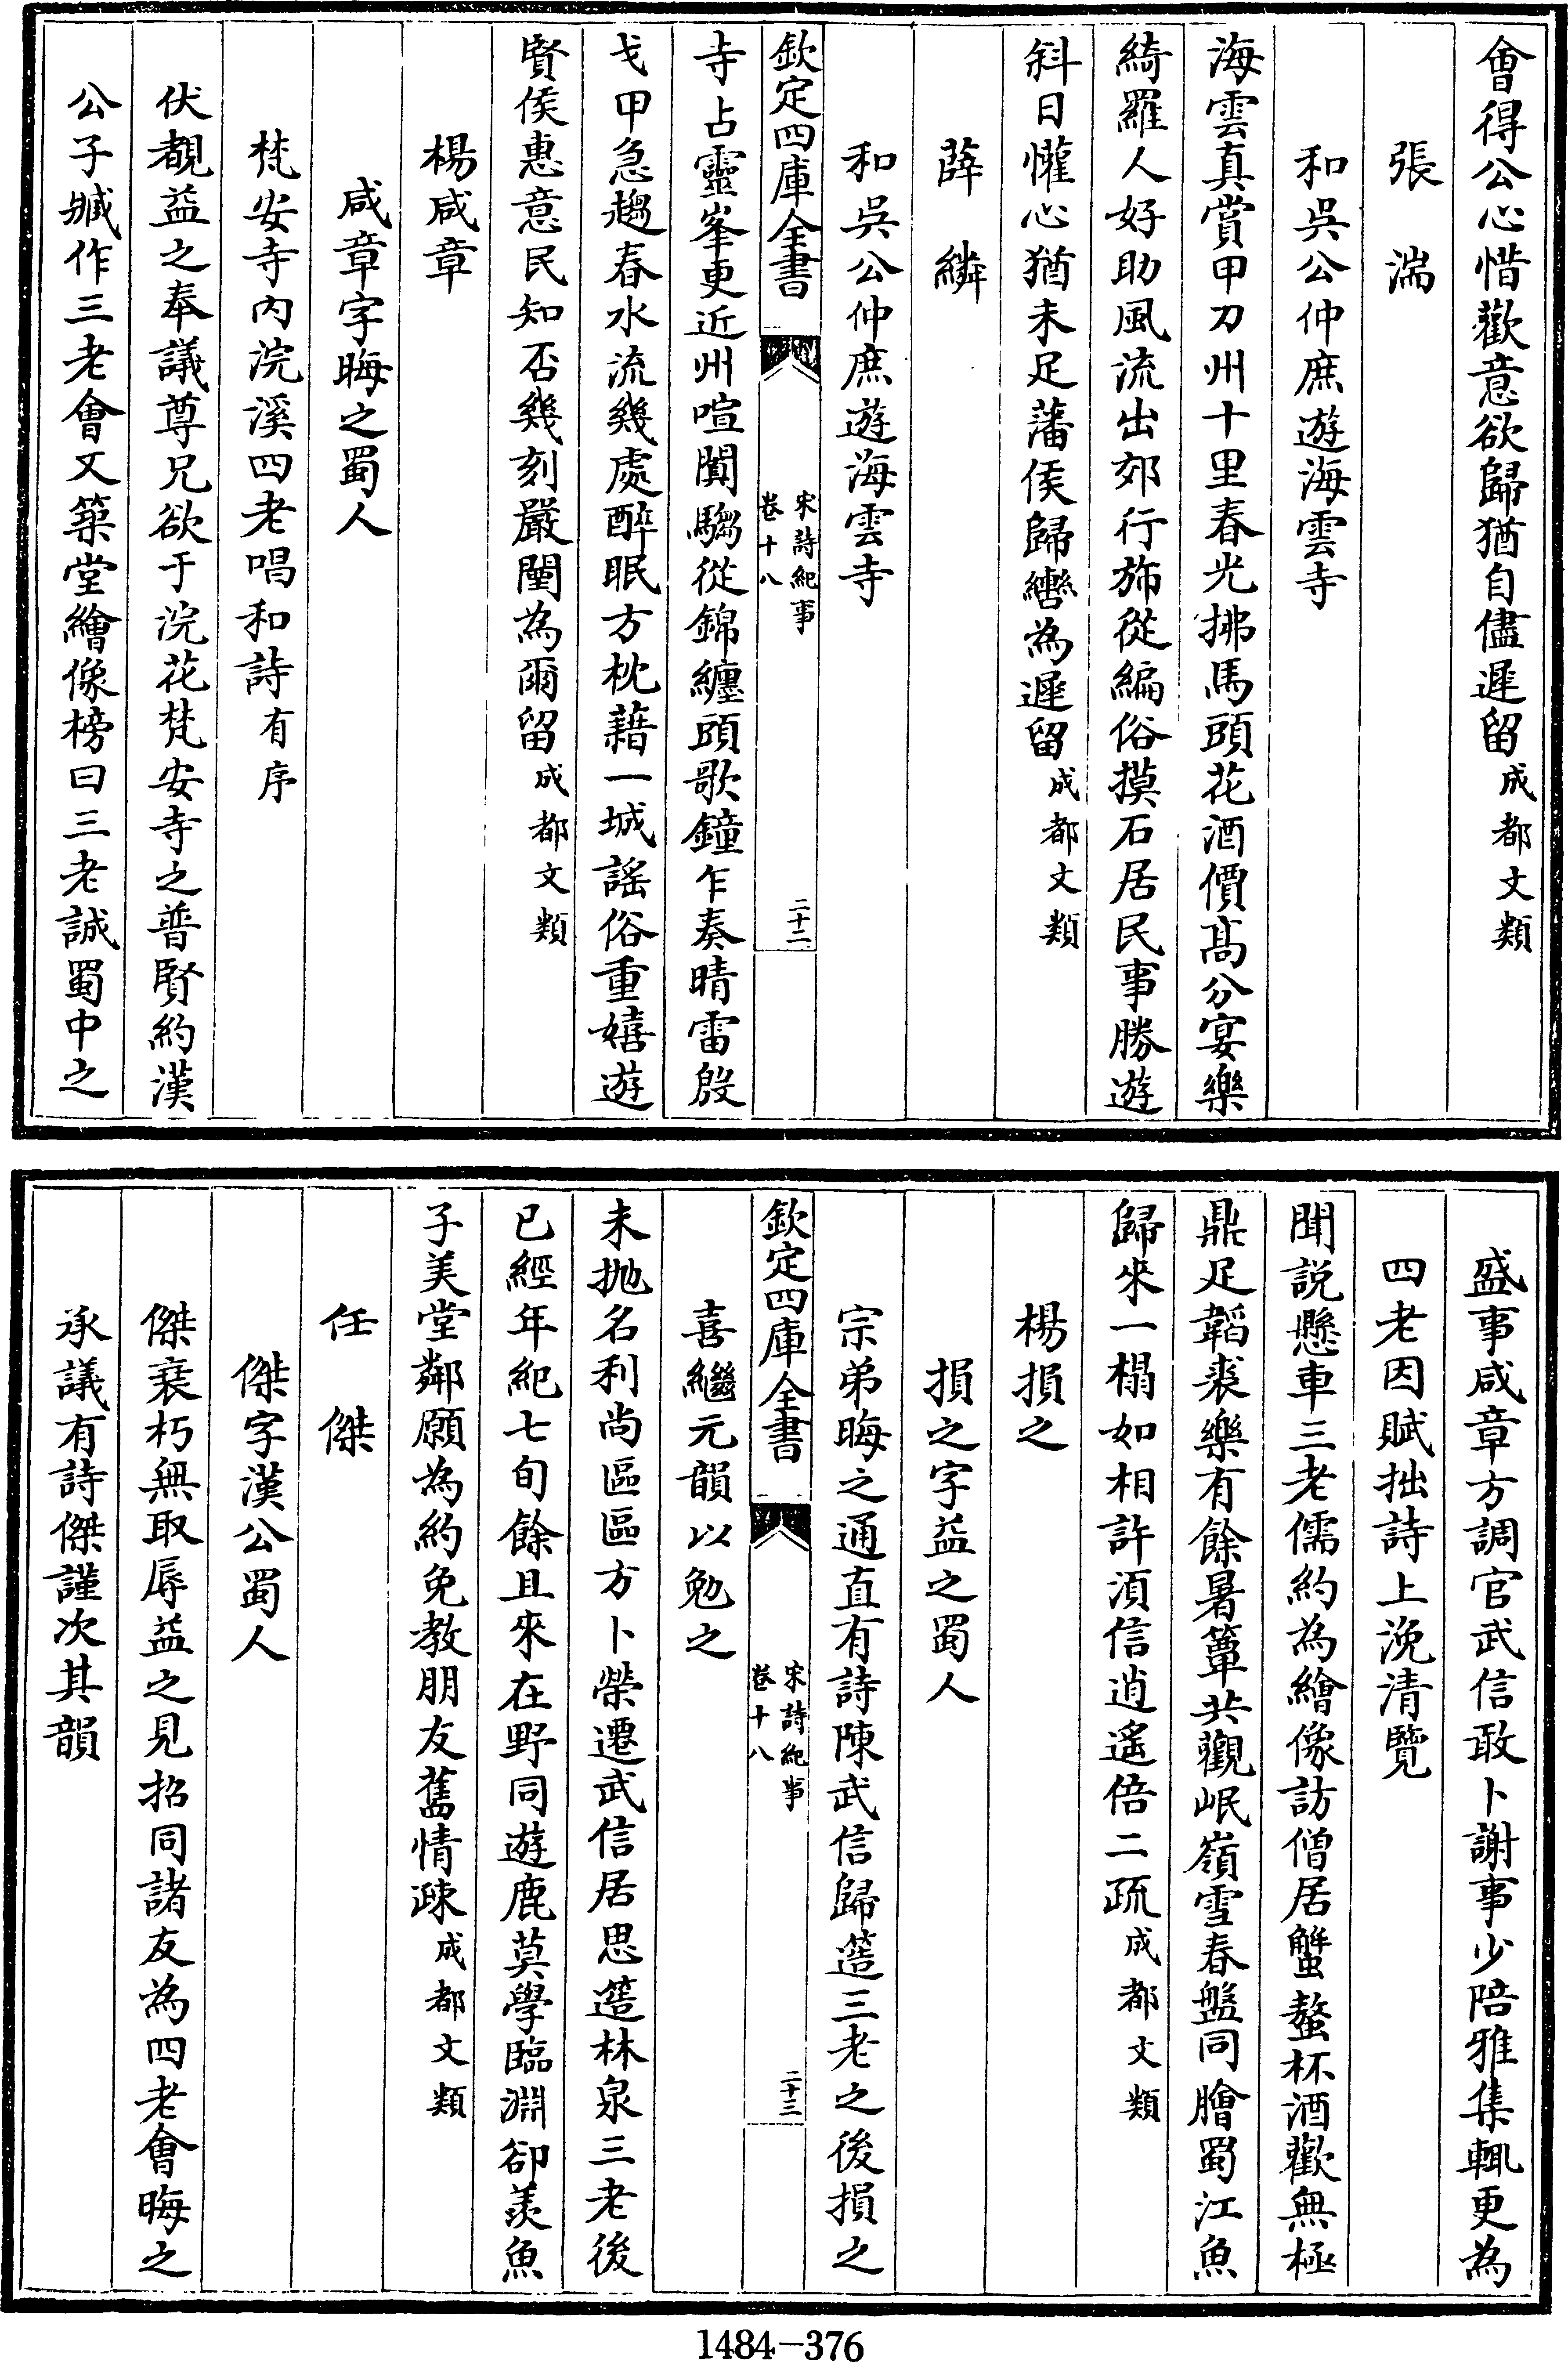 會得公心惜歡意欲歸猶自儘遲留成都文類
張湍
和吳公仲庶遊海雲寺
海雲真賞甲刀州十里春光拂馬頭花酒價髙分宴樂
綺羅人好助風流出郊行斾從編俗摸石居民事勝遊
斜日懽心猶未足藩侯歸轡為遲留成都文類
薛繗
和吳公仲庶遊海雲寺
欽定四庫全書
宋詩紀事
卷十八
二十二
寺占靈峯更近州喧闐騶從錦纏頭歌鐘乍奏晴雷殷
戈甲急趨春水流幾處醉眠方枕藉一城謠俗重嬉遊
賢侯惠意民知否幾刻嚴闉為爾留成都文類
楊咸章
咸章字晦之蜀人
梵安寺内浣溪四老唱和詩有序
伏覩益之奉議尊兄欲于浣花梵安寺之普賢約漢
公子臧作三老會又築堂繪像榜曰三老誠蜀中之
盛事咸章方調官武信敢卜謝事少陪雅集輒更為
四老因賦拙詩上浼清覽
聞說懸車三老儒約為繪像訪僧居蟹螯杯酒歡無極
鼎足韜裘樂有餘暑簟共觀岷嶺雪春盤同膾蜀江魚
歸來一榻如相許須信逍遙倍二疏成都文類
楊損之
損之字益之蜀人
宗弟晦之通直有詩陳武信歸簉三老之後損之
欽定四庫全書
宋詩紀事
卷十八
二十三
喜繼元韻以勉之
未抛名利尚區區方卜榮遷武信居思簉林泉三老後
已經年紀七旬餘且來在野同遊鹿莫學臨淵卻羨魚
子美堂鄰願為約免教朋友舊情疎成都文類
任傑
傑字漢公蜀人
傑衰朽無取辱益之見招同諸友為四老會晦之
承議有詩傑謹次其韻
1484-376